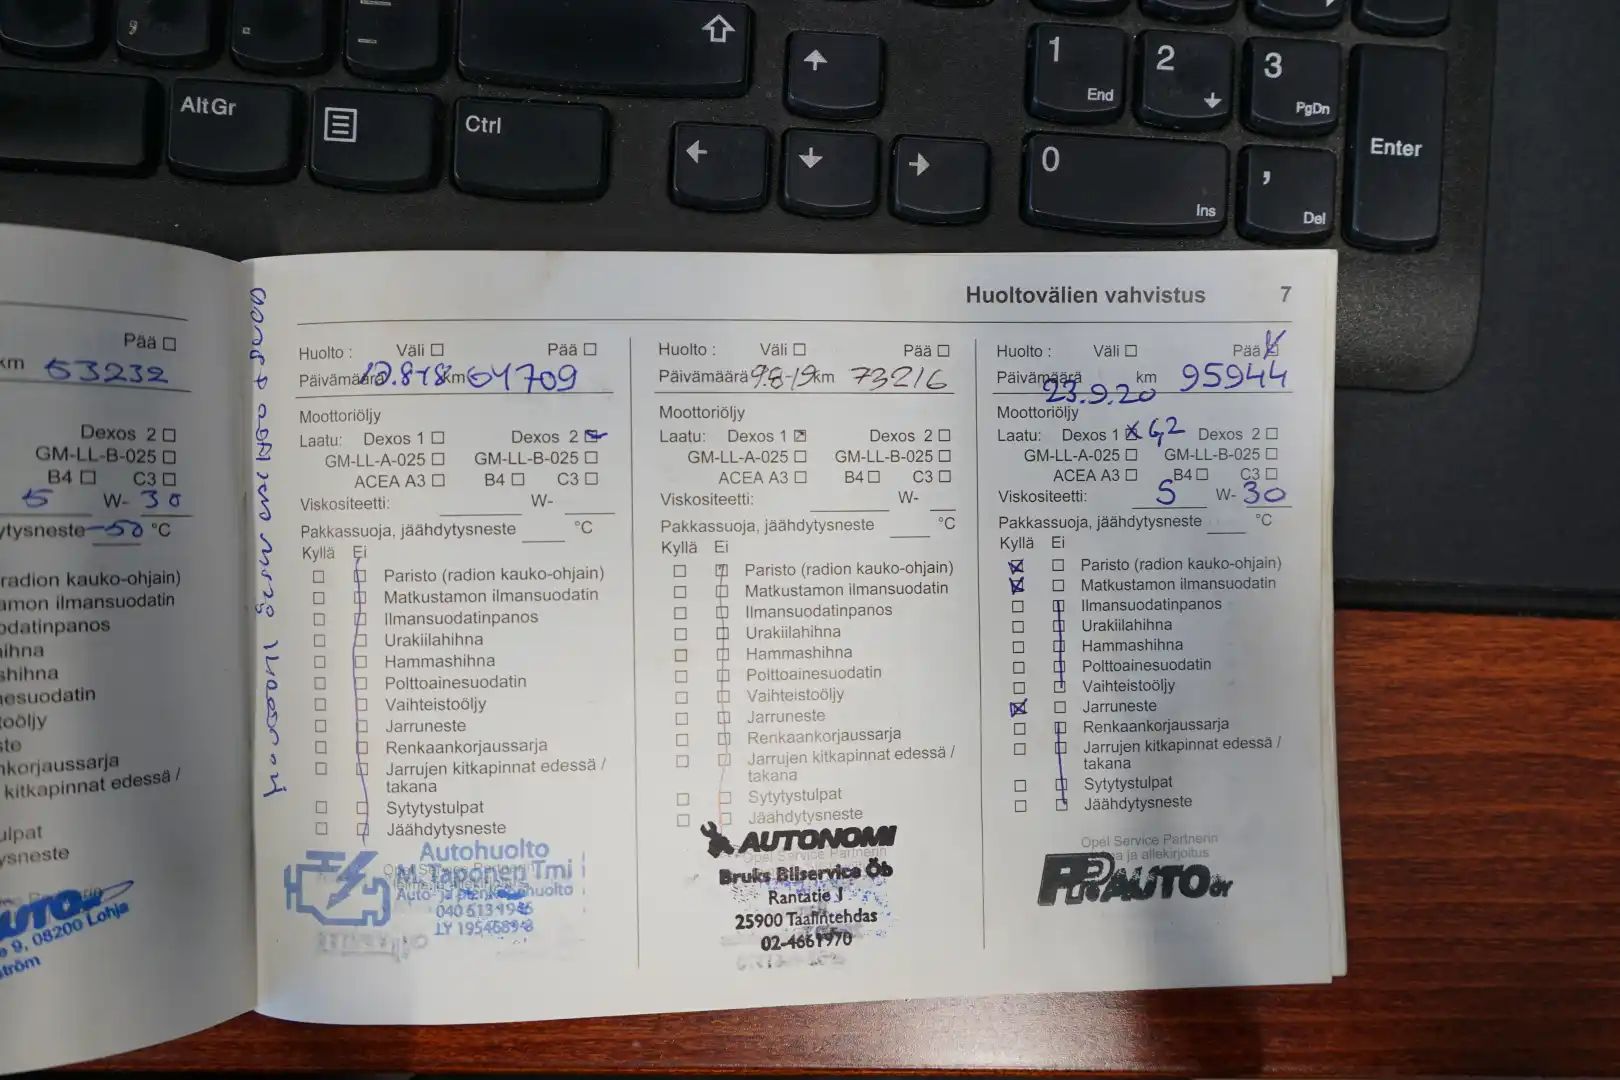 AltGr
Ctrl
1
End
2
3
PgDn
Enter
0
Ins
,
Del
Pää
km 53232
Dexos 2
GM-LL-B-025
B4 C3
5 W- 30
ytysneste -50 °C
radion kauko-ohjain)
amon ilmansuodatin
odatinpanos
ihna
shihna
nesuodatin
oöljy
ste
nkorjaussarja
kitkapinnat edessä /
ulpat
ysneste
AUTO
e 9, 08200 Lohja
ström
Huoltovälien vahvistus 7
Huolto : Väli Pää
Päivämäärä km 64709
Moottoriöljy
Laatu: Dexos 1 Dexos 2
GM-LL-A-025 GM-LL-B-025
ACEA A3 B4 C3
Viskositeetti: W-
Pakkassuoja, jäähdytysneste °C
Kyllä Ei
Paristo (radion kauko-ohjain)
Matkustamon ilmansuodatin
Ilmansuodatinpanos
Urakiilahihna
Hammashihna
Polttoainesuodatin
Vaihteistoöljy
Jarruneste
Renkaankorjaussarja
Jarrujen kitkapinnat edessä /
takana
Sytytystulpat
Jäähdytysneste
Autohuolto
M.Taponen Tmi
Huolto : Väli Pää
Päivämäärä 9.8-19 km 73216
Moottoriöljy
Laatu: Dexos 1 Dexos 2
GM-LL-A-025 GM-LL-B-025
ACEA A3 B4 C3
Viskositeetti: W-
Pakkassuoja, jäähdytysneste °C
Kyllä Ei
Paristo (radion kauko-ohjain)
Matkustamon ilmansuodatin
Ilmansuodatinpanos
Urakiilahihna
Hammashihna
Polttoainesuodatin
Vaihteistoöljy
Jarruneste
Renkaankorjaussarja
Jarrujen kitkapinnat edessä /
takana
Sytytystulpat
Jäähdytysneste
AUTONOMI
Opel Service Partnerin
Bruks Bilservice Öb
Rantatie 1
25900 Taalintehdas
02-4661970
Huolto : Väli Pää
Päivämäärä 23.9.20 km 95944
Moottoriöljy
Laatu: Dexos 1 G2 Dexos 2
GM-LL-A-025 GM-LL-B-025
ACEA A3 B4 C3
Viskositeetti: 5 W- 30
Pakkassuoja, jäähdytysneste °C
Kyllä Ei
Paristo (radion kauko-ohjain)
Matkustamon ilmansuodatin
Ilmansuodatinpanos
Urakiilahihna
Hammashihna
Polttoainesuodatin
Vaihteistoöljy
Jarruneste
Renkaankorjaussarja
Jarrujen kitkapinnat edessä /
takana
Sytytystulpat
Jäähdytysneste
Opel Service Partnerin
ja allekirjoitus
AUTO OY